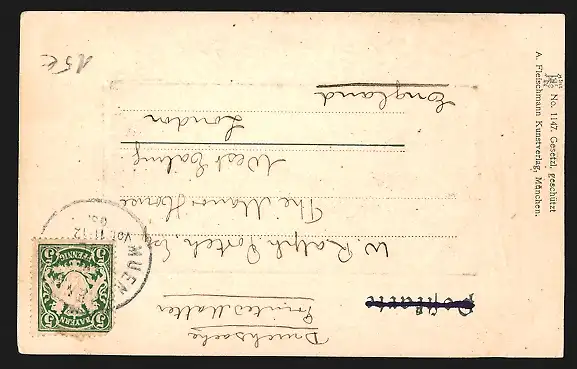 Drucksache
Printed Matter
Postkarte
W. Ralph Porteh, Esq
The Manor House
West Ealing
London
England
5 5
PFENNIG
BAYERN
5 5
MUEN
VOR. 11-12
15€
No. 1147. Gesetzl. geschützt
A. Fleischmann Kunstverlag, München.